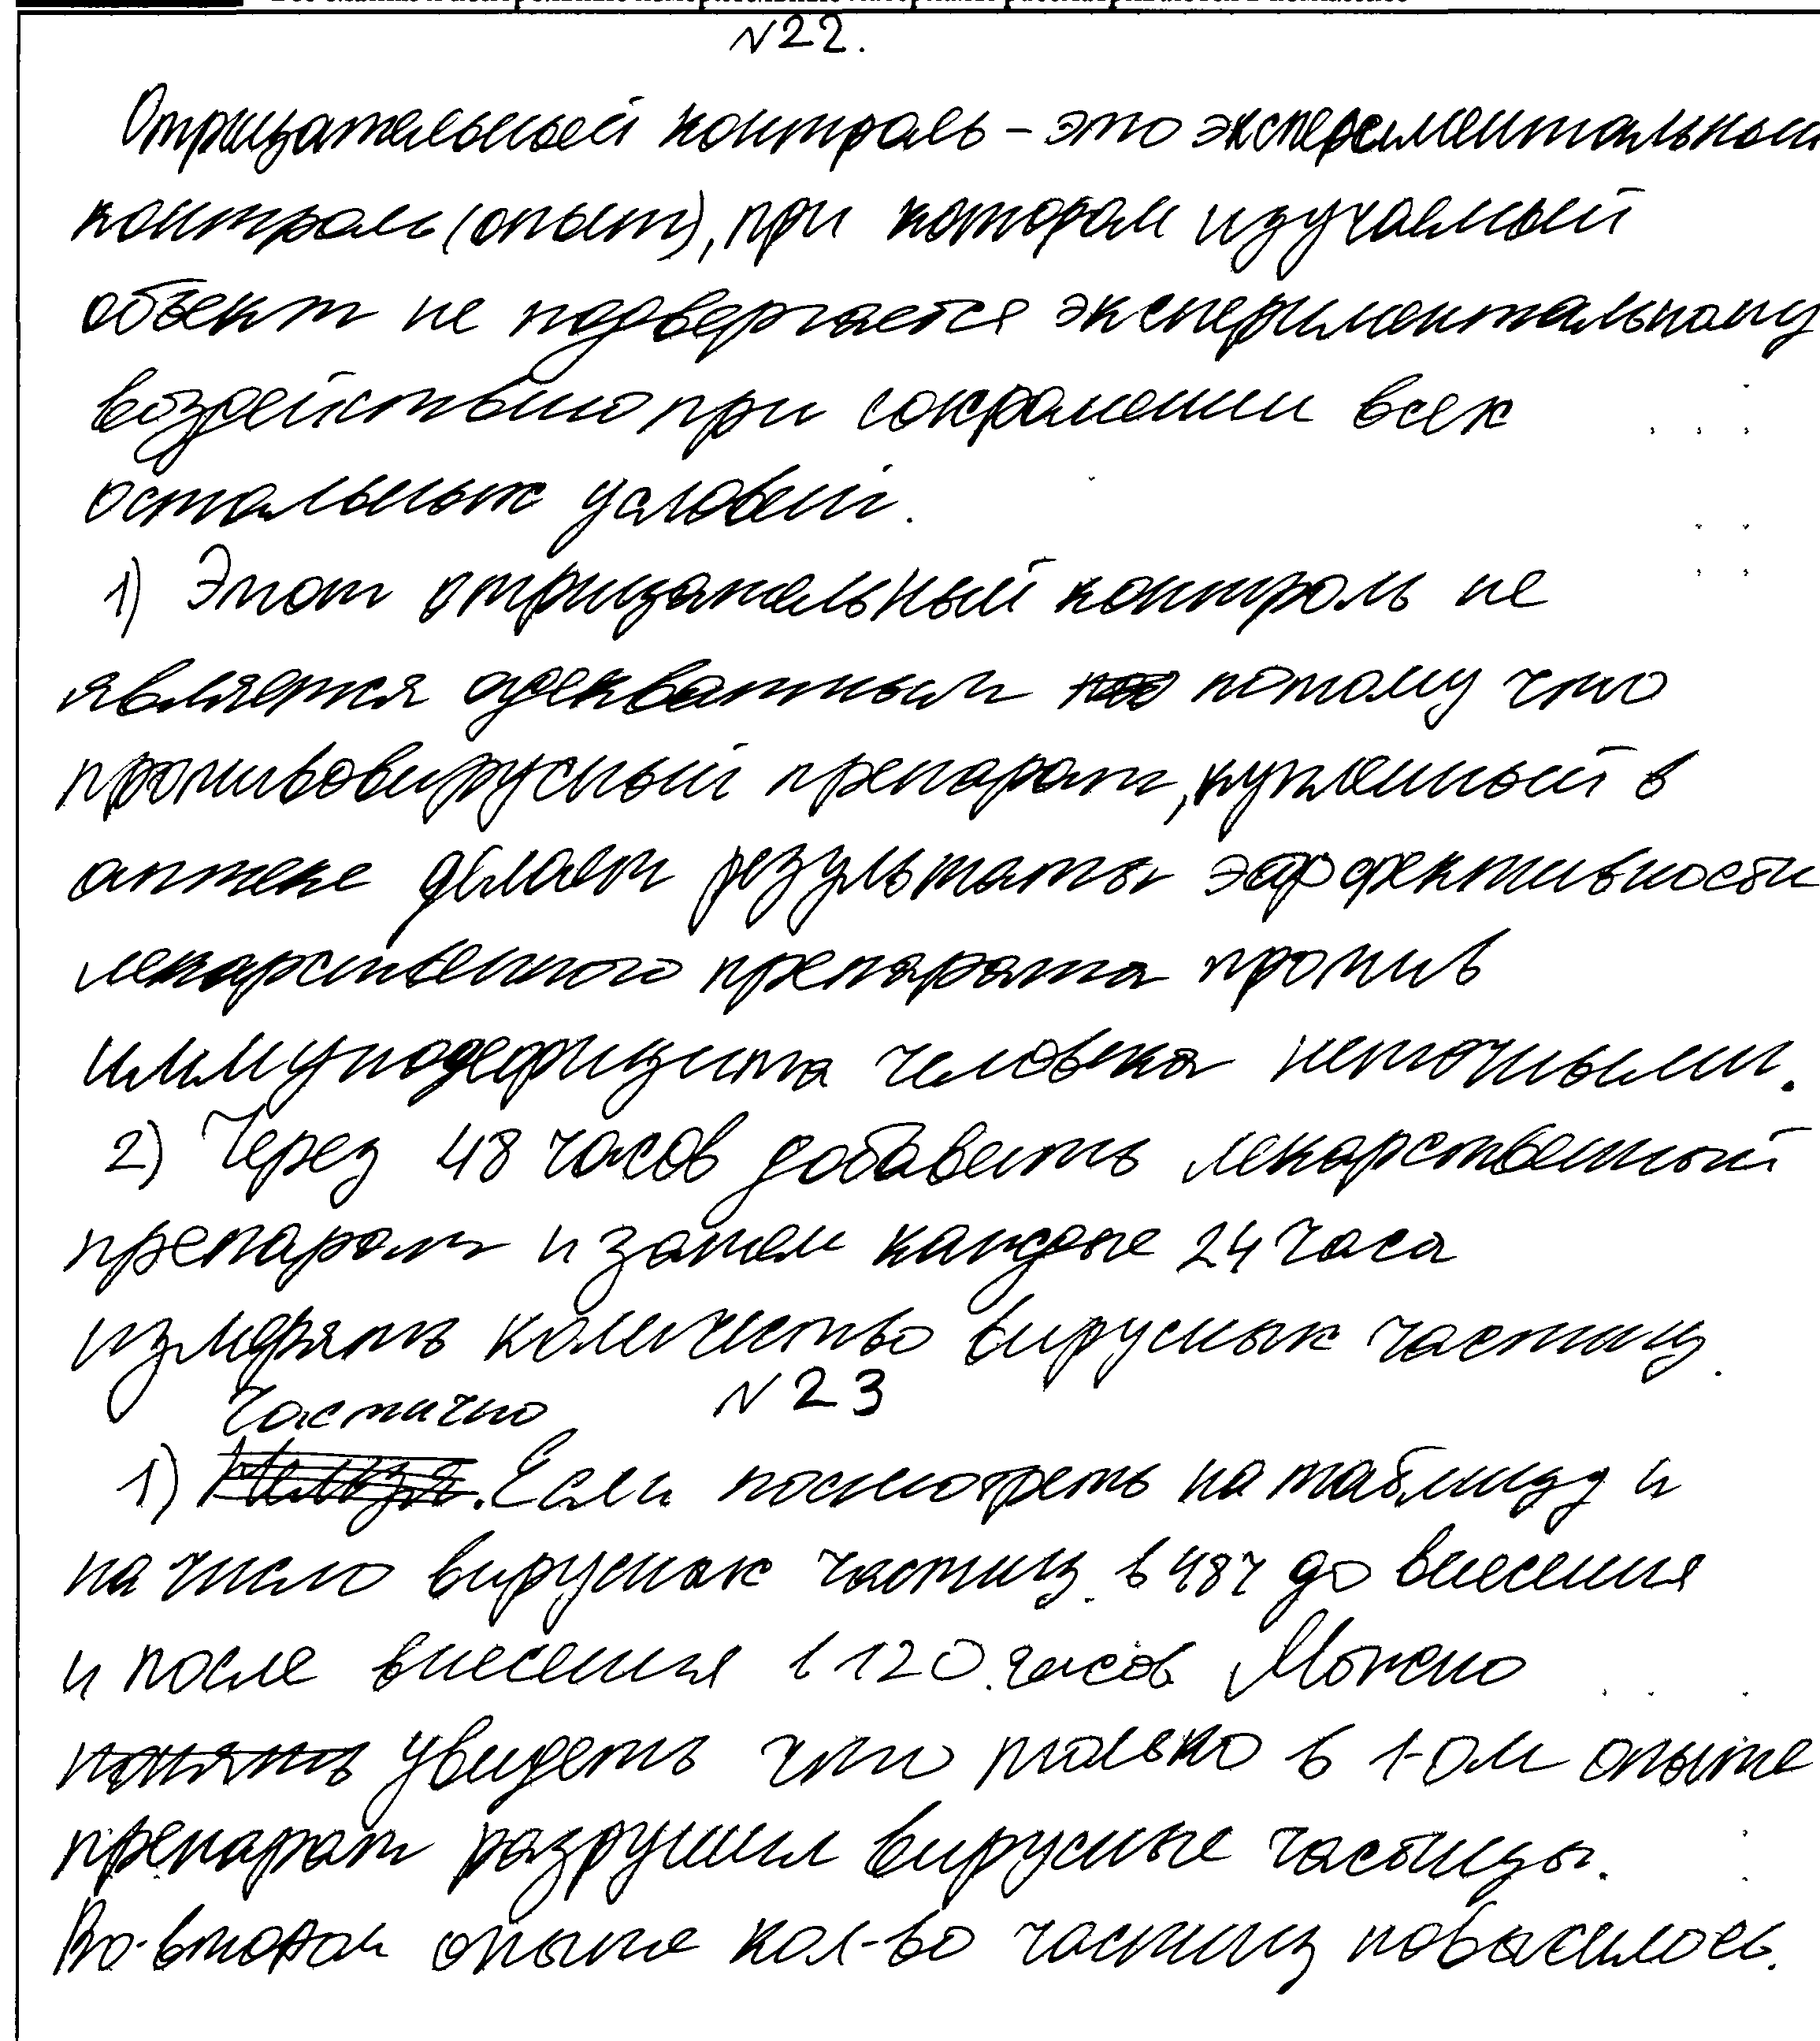 №22.
Отрицательный контроль – это экспериментальный
контроль (опыт), при котором изучаемый
объект не подвергается экспериментальному
воздействию при сохранении всех
остальных условий.
1) Этот отрицательный контроль не
является адекватным потому что
противовирусный препарат, купленный в
аптеке делает результаты эффективности
лекарственного препарата против
иммунодефицита человека неточными.
2) Через 48 часов добавить лекарственный
препарат и затем каждые 24 часа
измерять количество вирусных частиц.
№23
Частично
1) Нельзя. Если посмотреть на таблицу и
на число вирусных частиц в 48ч до внесения
и после внесения в 120 часов Можно
понять увидеть что только в 1-ом опыте
препарат разрушил вирусные частицы.
Во-втором опыте кол-во частиц повысилось.